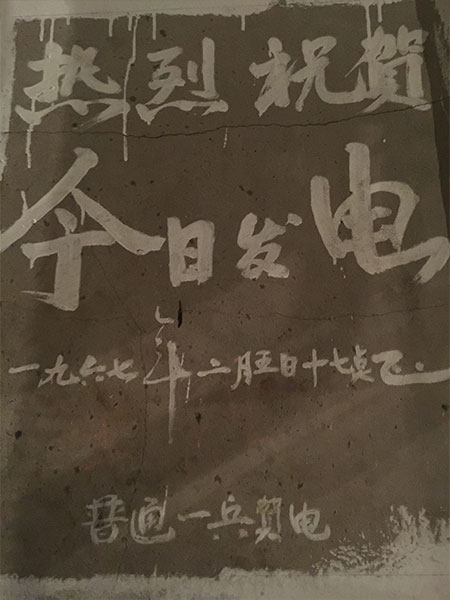 热烈祝贺
今日发电
一九六七年二月五日十七点正
普通一兵贺电